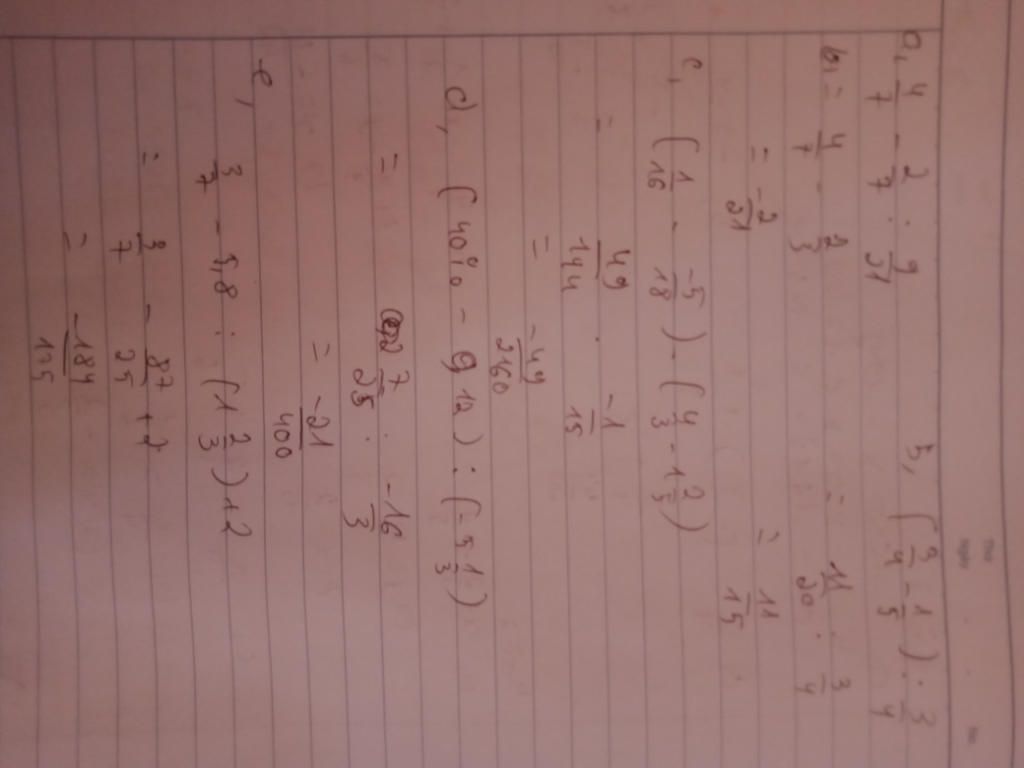 a, 4/7 - 2/7 : 9/21 b, (3/4 - 1/5) : 3/4
= 4/7 - 2/3 = 11/20 : 3/4
= -2/21 = 11/15
c, (1/16 - -5/18) . (4/3 - 1 2/5)
= 49/144 . -1/15
= -49/2160
d, (40% - 0,12) : (-5 1/3)
= 7/25 : -16/3
= -21/400
e,
3/7 - 5,8 : (1 2/3) + 2
= 3/7 - 87/25 + 2
= -184/175